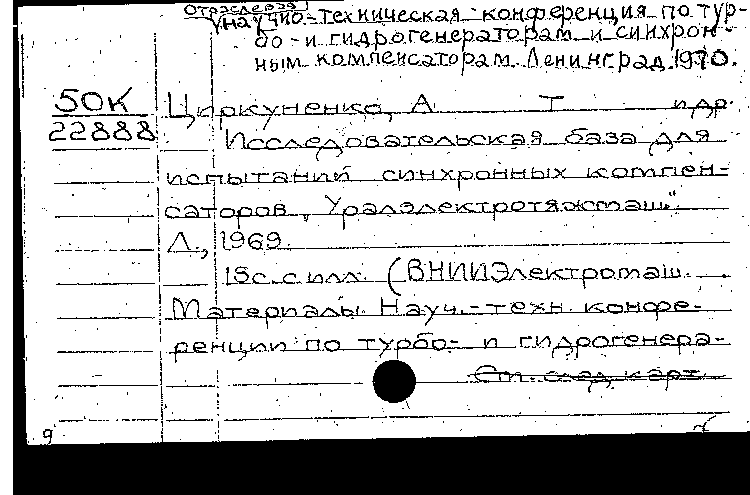 Отраслевая
научно-техническая конференция по тур-
бо- и гидрогенераторам и синхрон-
ным компенсаторам. Ленинград. 1970.
50К
22888
Циркуненко, А. Т. и др.
Исследовательская база для
испытаний синхронных компен-
саторов „Уралэлектротяжмаш".
Л., 1969.
15с. с илл. (ВНИИЭлектромаш.
Материалы Науч.-техн. конфе-
ренции по турбо- и гидрогенера-
См. след. карт.
9